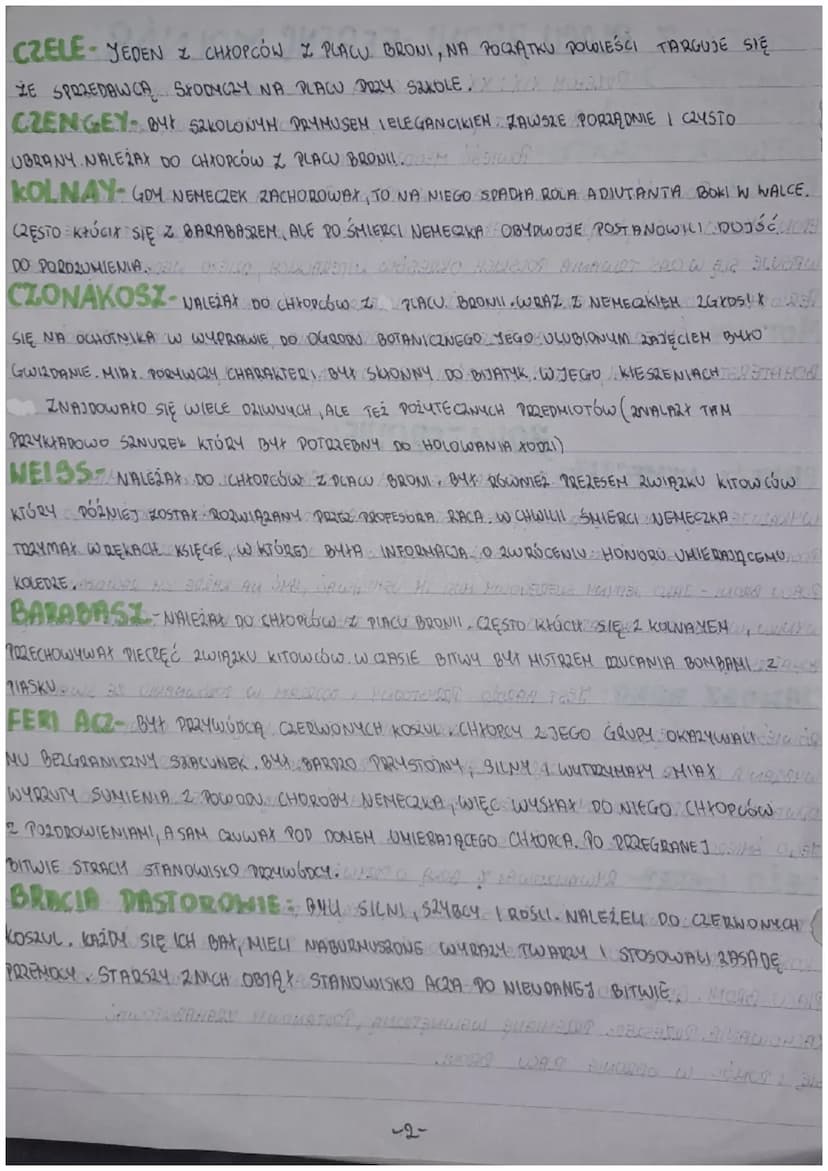 CZELE - JEDEN Z CHŁOPCÓW Z PLACU BRONI, NA POCZĄTKU POWIEŚCI TARGUJE SIĘ
ZE SPRZEDAWCĄ SŁODYCZY NA PLACU PRZY SZKOLE.
CZENGEY- BYŁ SZKOLONYM PRYMUSEM I ELEGANCIKIEM. ZAWSZE PORZĄDNIE I CZYSTO
UBRANY. NALEŻAŁ DO CHŁOPCÓW Z PLACU BRONII.
KOLNAY- GDY NEMECZEK ZACHOROWAŁ, TO NA NIEGO SPADŁA ROLA ADIUTANTA BOKI W WALCE.
CZĘSTO KŁÓCIŁ SIĘ Z BARABASZEM, ALE PO ŚMIERCI NEMECZKA OBYDWOJE POSTANOWILI DOJŚĆ
DO POROZUMIENIA.
CZONAKOSZ- NALEŻAŁ DO CHŁOPCÓW Z PLACU BRONII. WRAZ Z NEMECZKIEM ZGŁOSIŁ
SIĘ NA OCHOTNIKA W WYPRAWIE DO OGRODU BOTANICZNEGO. JEGO ULUBIONYM ZAJĘCIEM BYŁO
GWIZDANIE. MIAŁ PORYWCZY CHARAKTER I BYŁ SKŁONNY DO BIJATYK. W JEGO KIESZENIACH
ZNAJDOWAŁO SIĘ WIELE DZIWNYCH, ALE TEŻ POŻYTECZNYCH PRZEDMIOTÓW (ZNALAZŁ TAM
PRZYKŁADOWO SZNUREK KTÓRY BYŁ POTRZEBNY DO HOLOWANIA ŁODZI)
WEISS- NALEŻAŁ DO CHŁOPCÓW Z PLACU BRONI. BYŁ RÓWNIEŻ PREZESEM ZWIĄZKU KITOWCÓW
KTÓRY PÓŹNIEJ ZOSTAŁ ROZWIĄZANY PRZEZ PROFESORA RACA. W CHWILII ŚMIERCI NEMECZKA
TRZYMAŁ W RĘKACH KSIĘGĘ, W KTÓREJ BYŁA INFORMACJA O ZWRÓCENIU HONORU UMIERAJĄCEMU
KOLEDZE.
BARABASZ - NALEŻAŁ DO CHŁOPCÓW Z PLACU BRONII. CZĘSTO KŁÓCIŁ SIĘ Z KOLNAYEM,
PRZECHOWYWAŁ PIECZĘĆ ZWIĄZKU KITOWCÓW. W CZASIE BITWY BYŁ MISTRZEM RZUCANIA BOMBAMI Z
PIASKU
FERI ACZ- BYŁ PRZYWÓDCĄ CZERWONYCH KOSZUL. CHŁOPCY Z JEGO GRUPY OKAZYWALI
MU BEZGRANISZNY SZACUNEK. BYŁ BARDZO PRZYSTOJNY, SILNY I WYTRZYMAŁY MIAŁ
WYRZUTY SUMIENIA Z POWODU CHOROBY NEMECZKA, WIĘC WYSŁAŁ DO NIEGO CHŁOPCÓW
Z POZDROWIENIAMI, A SAM CZUWAŁ POD DOMEM UMIERAJĄCEGO CHŁOPCA. PO PRZEGRANEJ
BITWIE STRACIŁ STANOWISKO PRZYWÓDCY.
BRACIA PASTOROWIE: BYLI SILNI, SZYBCY I ROŚLI. NALEŻELI DO CZERWONYCH
KOSZUL. KAŻDY SIĘ ICH BAŁ, MIELI NABURMUSZONE WYRAZY TWARZY I STOSOWALI ZASADĘ
PRZEMOCY. STARSZY Z NICH OBJĄŁ STANOWISKO ACZA PO NIEUDANEJ BITWIE.
-2-